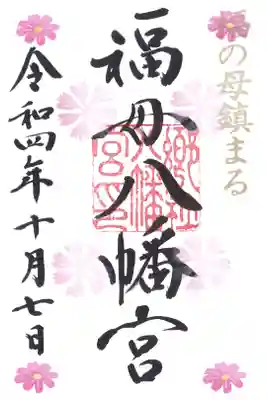 福の母鎮まる
福母八幡宮
郷社
八幡
宮印
令和四年十月七日